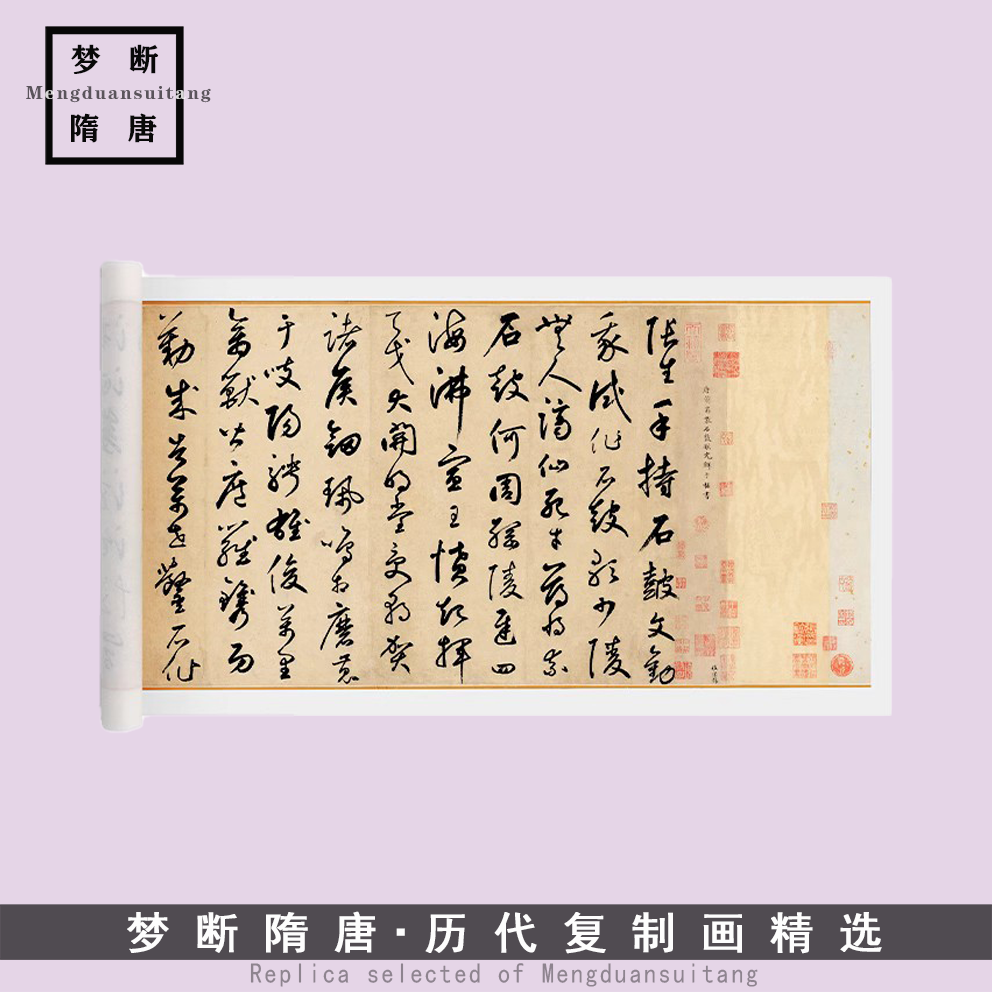 梦断
Mengduansuitang
隋唐
唐韓昌黎石鼓歌元鮮于樞書
張生手持石鼓文勸
我試作石鼓歌少陵
無人謫仙死才薄將奈
石鼓何周綱陵遲四
海沸宣王憤起揮
天戈大開明堂受朝賀
諸侯劒珮鳴相磨蒐
于岐陽騁雄俊萬里
禽獸皆遮羅鐫功
勒成告萬世鑿石作
梦断隋唐·历代复制画精选
Replica selected of Mengduansuitang